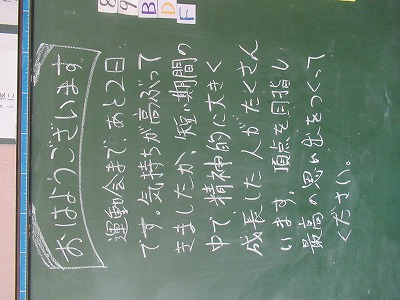 おはようございます
運動会まであと2日
です。気持ちが高ぶって
きましたが、短い期間の
中で精神的に大きく
成長した人がたくさん
います。頂点を目指し
最高の思い出をつくって
ください。
8
9
B
D
F